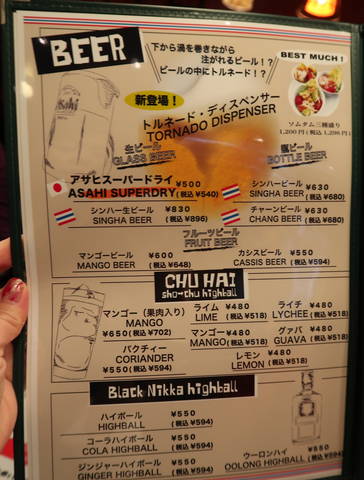 BEER
下から渦を巻きながら
注がれるビール!?
ビールの中にトルネード!?
BEST MUCH!
ソムタム三種盛り
1,200円(税込1,296円)
新登場!
トルネード・ディスペンサー
TORNADO DISPENSER
生ビール
GLASS BEER
瓶ビール
BOTTLE BEER
Asahi
アサヒスーパードライ ¥500
ASAHI SUPERDRY (税込 ¥540)
シンハービール ¥630
SINGHA BEER (税込 ¥680)
シンハー生ビール ¥830
SINGHA BEER (税込 ¥896)
チャーンビール ¥630
CHANG BEER (税込 ¥680)
フルーツビール
FRUIT BEER
マンゴービール ¥600
MANGO BEER (税込 ¥648)
カシスビール ¥550
CASSIS BEER (税込 ¥594)
CHU HAI
sho-chu highball
マンゴー(果肉入り)
MANGO
¥650(税込 ¥702)
ライム ¥480
LIME (税込 ¥518)
ライチ ¥480
LYCHEE (税込 ¥518)
マンゴー ¥480
MANGO (税込 ¥518)
グァバ ¥480
GUAVA (税込 ¥518)
パクチー
CORIANDER
¥550(税込 ¥594)
レモン ¥480
LEMON (税込 ¥518)
Black Nikka highball
ハイボール ¥550
HIGHBALL (税込 ¥594)
コーラハイボール ¥550
COLA HIGHBALL (税込 ¥594)
ジンジャーハイボール ¥550
GINGER HIGHBALL (税込 ¥594)
ウーロンハイ ¥550
OOLONG HIGHBALL (税込 ¥594)